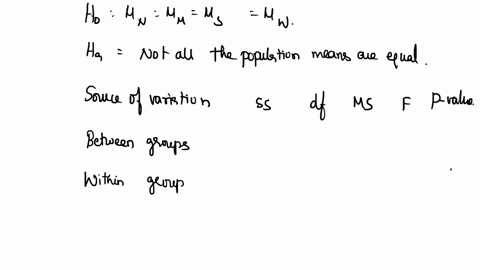 H₀ : μ_N = μ_M = μ_S = μ_W.
Ha = Not all the population means are equal.
Source of variation SS df MS F P-value
Between groups
Within group